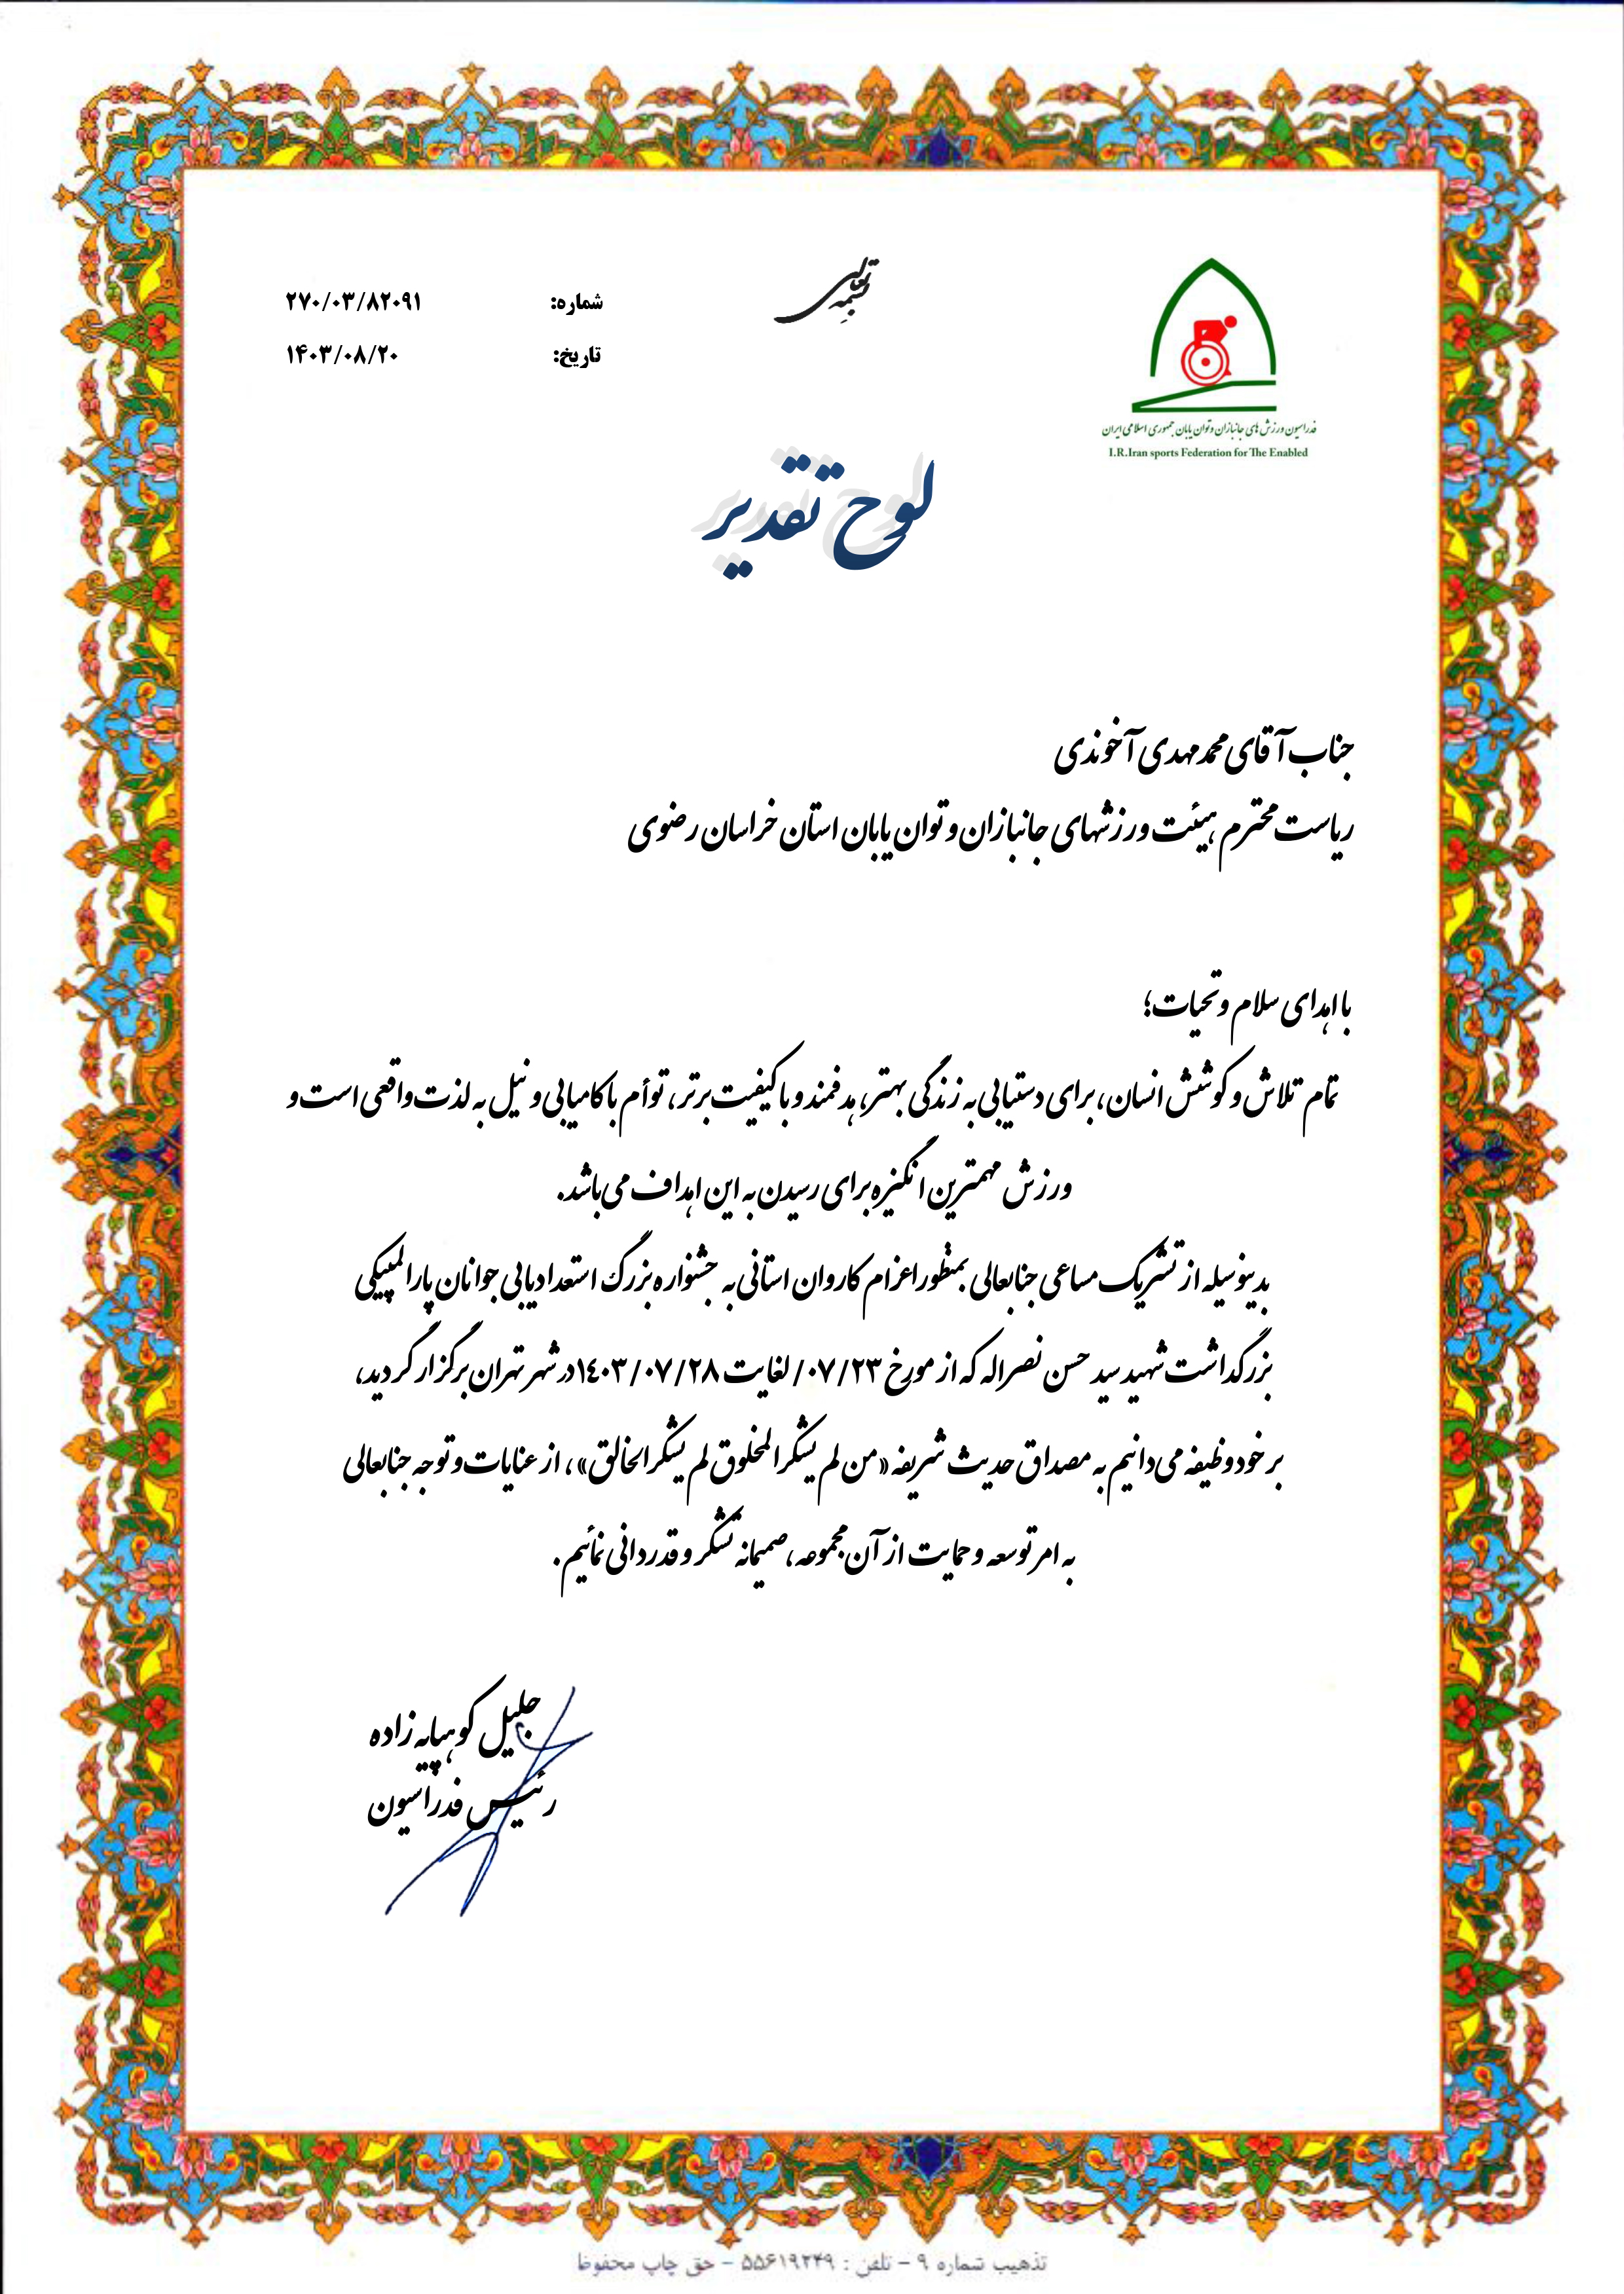 بسمه تعالی
شماره: ۲۷۰/۰۳/۸۲۰۹۱
تاریخ: ۱۴۰۳/۰۸/۲۰
فدراسیون ورزش های جانبازان و توان یابان جمهوری اسلامی ایران
I.R.Iran sports Federation for The Enabled
لوح تقدیر
جناب آقای محمد مهدی آخوندی
ریاست محترم هیئت ورزشهای جانبازان و توان یابان استان خراسان رضوی
با اهدای سلام و تحیات؛
تمام تلاش و کوشش انسان، برای دستیابی به زندگی بهتر، هدفمند و با کیفیت برتر، توأم با کامیابی و نیل به لذت واقعی است و
ورزش مهمترین انگیزه برای رسیدن به این اهداف می باشد.
بدینوسیله از تشریک مساعی جنابعالی بمنظور اعزام کاروان استانی به جشنواره بزرگ استعدادیابی جوانان پارالمپیکی
بزرگداشت شهید سید حسن نصراله که از مورخ ۰۷/۲۳/ لغایت ۱٤۰۳/۰۷/۲۸ در شهر تهران برگزار گردید،
بر خود وظیفه می دانیم به مصداق حدیث شریفه «من لم یشکر المخلوق لم یشکر الخالق»، از عنایات و توجه جنابعالی
به امر توسعه و حمایت از آن مجموعه، صمیمانه تشکر و قدردانی نمائیم.
جلیل کوهپایه زاده
رئیس فدراسیون
تذهیب شماره ۹ – تلفن : ۵۵۶۱۹۲۴۹ – حق چاپ محفوظ